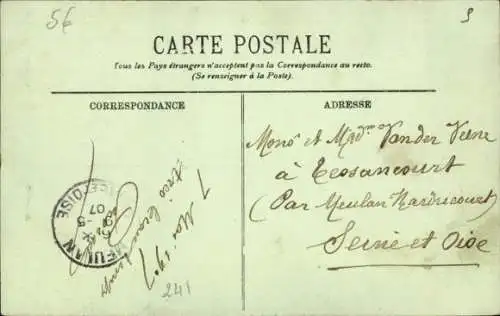 56
5
CARTE POSTALE
Tous les Pays étrangers n'acceptent pas la Correspondance au recto.
(Se renseigner à la Poste).
CORRESPONDANCE
ADRESSE
Mons et Mdme Vander Veene
à Tessancourt
(Par Meulan Hardricourt)
Seine et Oise
7 Mai 1907
241
MEULAN
07